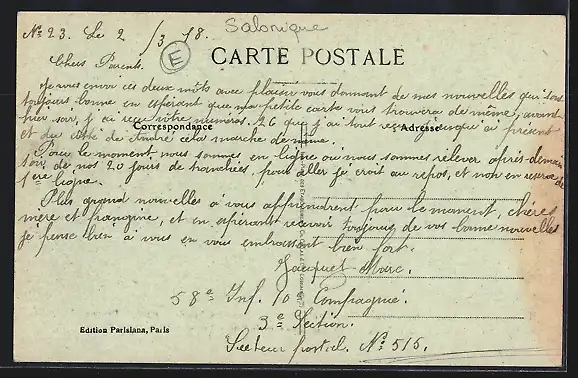 No 23. Le 2/3/18.
Salonique
E
CARTE POSTALE
Chers Parents.
Je vous envoi ces deux mots avec plaisir vous donnant de mes nouvelles qui sont
toujours bonne en espérant que ma petite carte vous trouvera de même, avant-
hier soir, j'ai reçu votre numéros 26 que j'ai tout reçu jusque à présent
et du côté de André cela marche de même.
Correspondance
Adresse
Pour le moment nous sommes en ligne où nous sommes relever après-demain
soir de nos 20 jours de tranchées, pour aller je croit au repos, et non en reserve de
1ère ligne.
Plus grand nouvelles à vous apprendrent pour le moment, chères
mère et frangine, et en espérant recevoir toujours, de vos bonne nouvelles
je pense bien à vous en vous embrassant bien fort.
Jacquet Marc.
58e Inf. 10 Compagnie.
3e Section.
Secteur postal. No 515.
Edition Parisiana, Paris